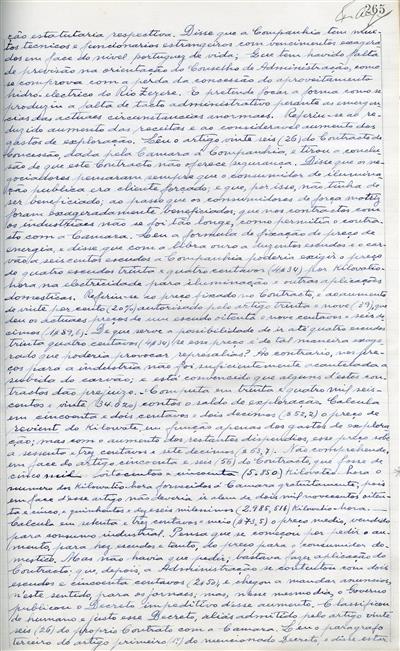 265
ção estatutaria respectiva. Disse que a Companhia tem mui-
tos tecnicos e funcionarios estrangeiros com vencimentos exagera
dos em face do nivel portuguez de vida; Que tem havido falta
de previsão na orientação do Conselho de Administração, como
se comprova com a perda da concessão do aproveitamento
hidro-electrico do Rio Zezere. E pretende focar a forma como se
produziu a falta de tacto administrativo perante as emergen
cias das actuaes circunstancias anormaes. Referiu-se ao re-
duzido aumento das receitas e ao consideravel aumento dos
gastos de exploração. Leu o artigo vinte seis (26) do Contracto de
Concessão, dada pela Camara á Companhia e tirou a conclu
são de que este Contracto não oferece segurança. Disse que os ne-
gociadores pensaram sempre que o consumidor de ilumina
ção publica era cliente forçado, e que, por isso, não tinha de
ser beneficiado; ao passo que os consumidores de força motriz
foram exageradamente beneficiados, que nos contractos com
os industriaes não se foi tão longe, como permitia o contra-
to com a Camara. Leu a formula de fixação de preço de
energia, e disse que com a libra ouro a duzentos escudos e o car-
vão a seiscentos escudos a Companhia poderia exigir o preço
de quatro escudos trinta e quatro centavos (4$34) por Kilovatio-
hora na electricidade para iluminação e outras aplicações
domesticas. Referiu-se ao preço fixado no Contracto, e aumento
de vinte por cento (20%) autorisado pelo artigo trinta e nove (39), que
deu os actuaes preços de um escudo oitenta e nove centavos e seis de-
cimos (1$89,6). De que serve a possibilidade de ir até quatro escudos
trinta quatro centavos (4$34) se esse preço é de tal maneira exage-
rado que poderia provocar represalias? Ao contrario, nos pre-
ços para a industria não foi suficientemente acautelada a
subida do carvão; e está convencido que alguns destes con-
tractos dão prejuizo. Computa em trinta e quatro mil seis-
centos e vinte (34.620) contos o saldo de exploração. Calcula
em cincoenta e dois centavos e dois decimos ($52,2) o preço de
revient do Kilowate, em função apenas dos gastos de explora
ção; mas com o aumento dos restantes dispendios, esse preço sobe
a sessenta e trez centavos e sete decimos ($63,7). Não comprehende,
em face do artigo cincoenta e seis (56) do Contracto, que fosse de
cinco mil oitocentos e cincoenta (5.850) Kilovatios-hora o
numero dos Kilovatios-hora fornecidos á Camara gratuitamente, pois
em face d'esse artigo não deveria ir alem de dois mil novecentos oiten-
ta e cinco, e quinhentos e dezeseis milesimos (2.985,516) Kilovatios-hora.
Calcula em setenta e trez centavos e meio ($73,5) o preço medio, vendido
para consumo industrial. Pensa que se começou por pedir o au-
mento, para trez escudos e tanto, do preço para o consumidor do-
mestico. Mas não havia que pedir, bastava fazer aplicação do
Contracto; que, depois, a Administração se contentou com dois
escudos e cincoenta centavos (2$50), e chegou a mandar anuncios,
n'este sentido, para os jornaes, mas, n'esse mesmo dia, o Governo
publicou o Decreto impeditivo desse aumento. Classificou
de humano e justo esse Decreto, aliás admitido pelo artigo vinte
seis (26) do proprio Contrato com a Camara. Leu o paragrafo
terceiro do artigo primeiro (1º) do mencionado Decreto, e disse estar